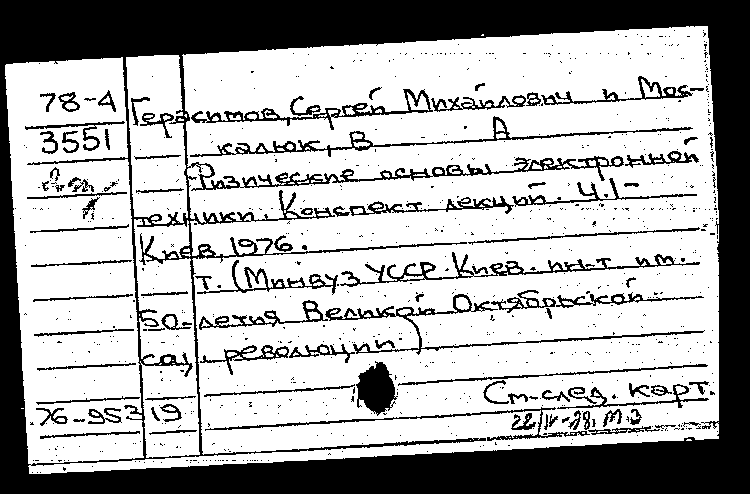 78-4 Герасимов, Сергей Михайлович и Мос-
3551 калюк, В А
Физические основы электронной
техники. Конспект лекций. Ч.1-
Киев, 1976.
т. (Минвуз УССР. Киев. ин-т им.
50-летия Великой Октябрьской
соц. революции)
76-95319 См. след. карт.